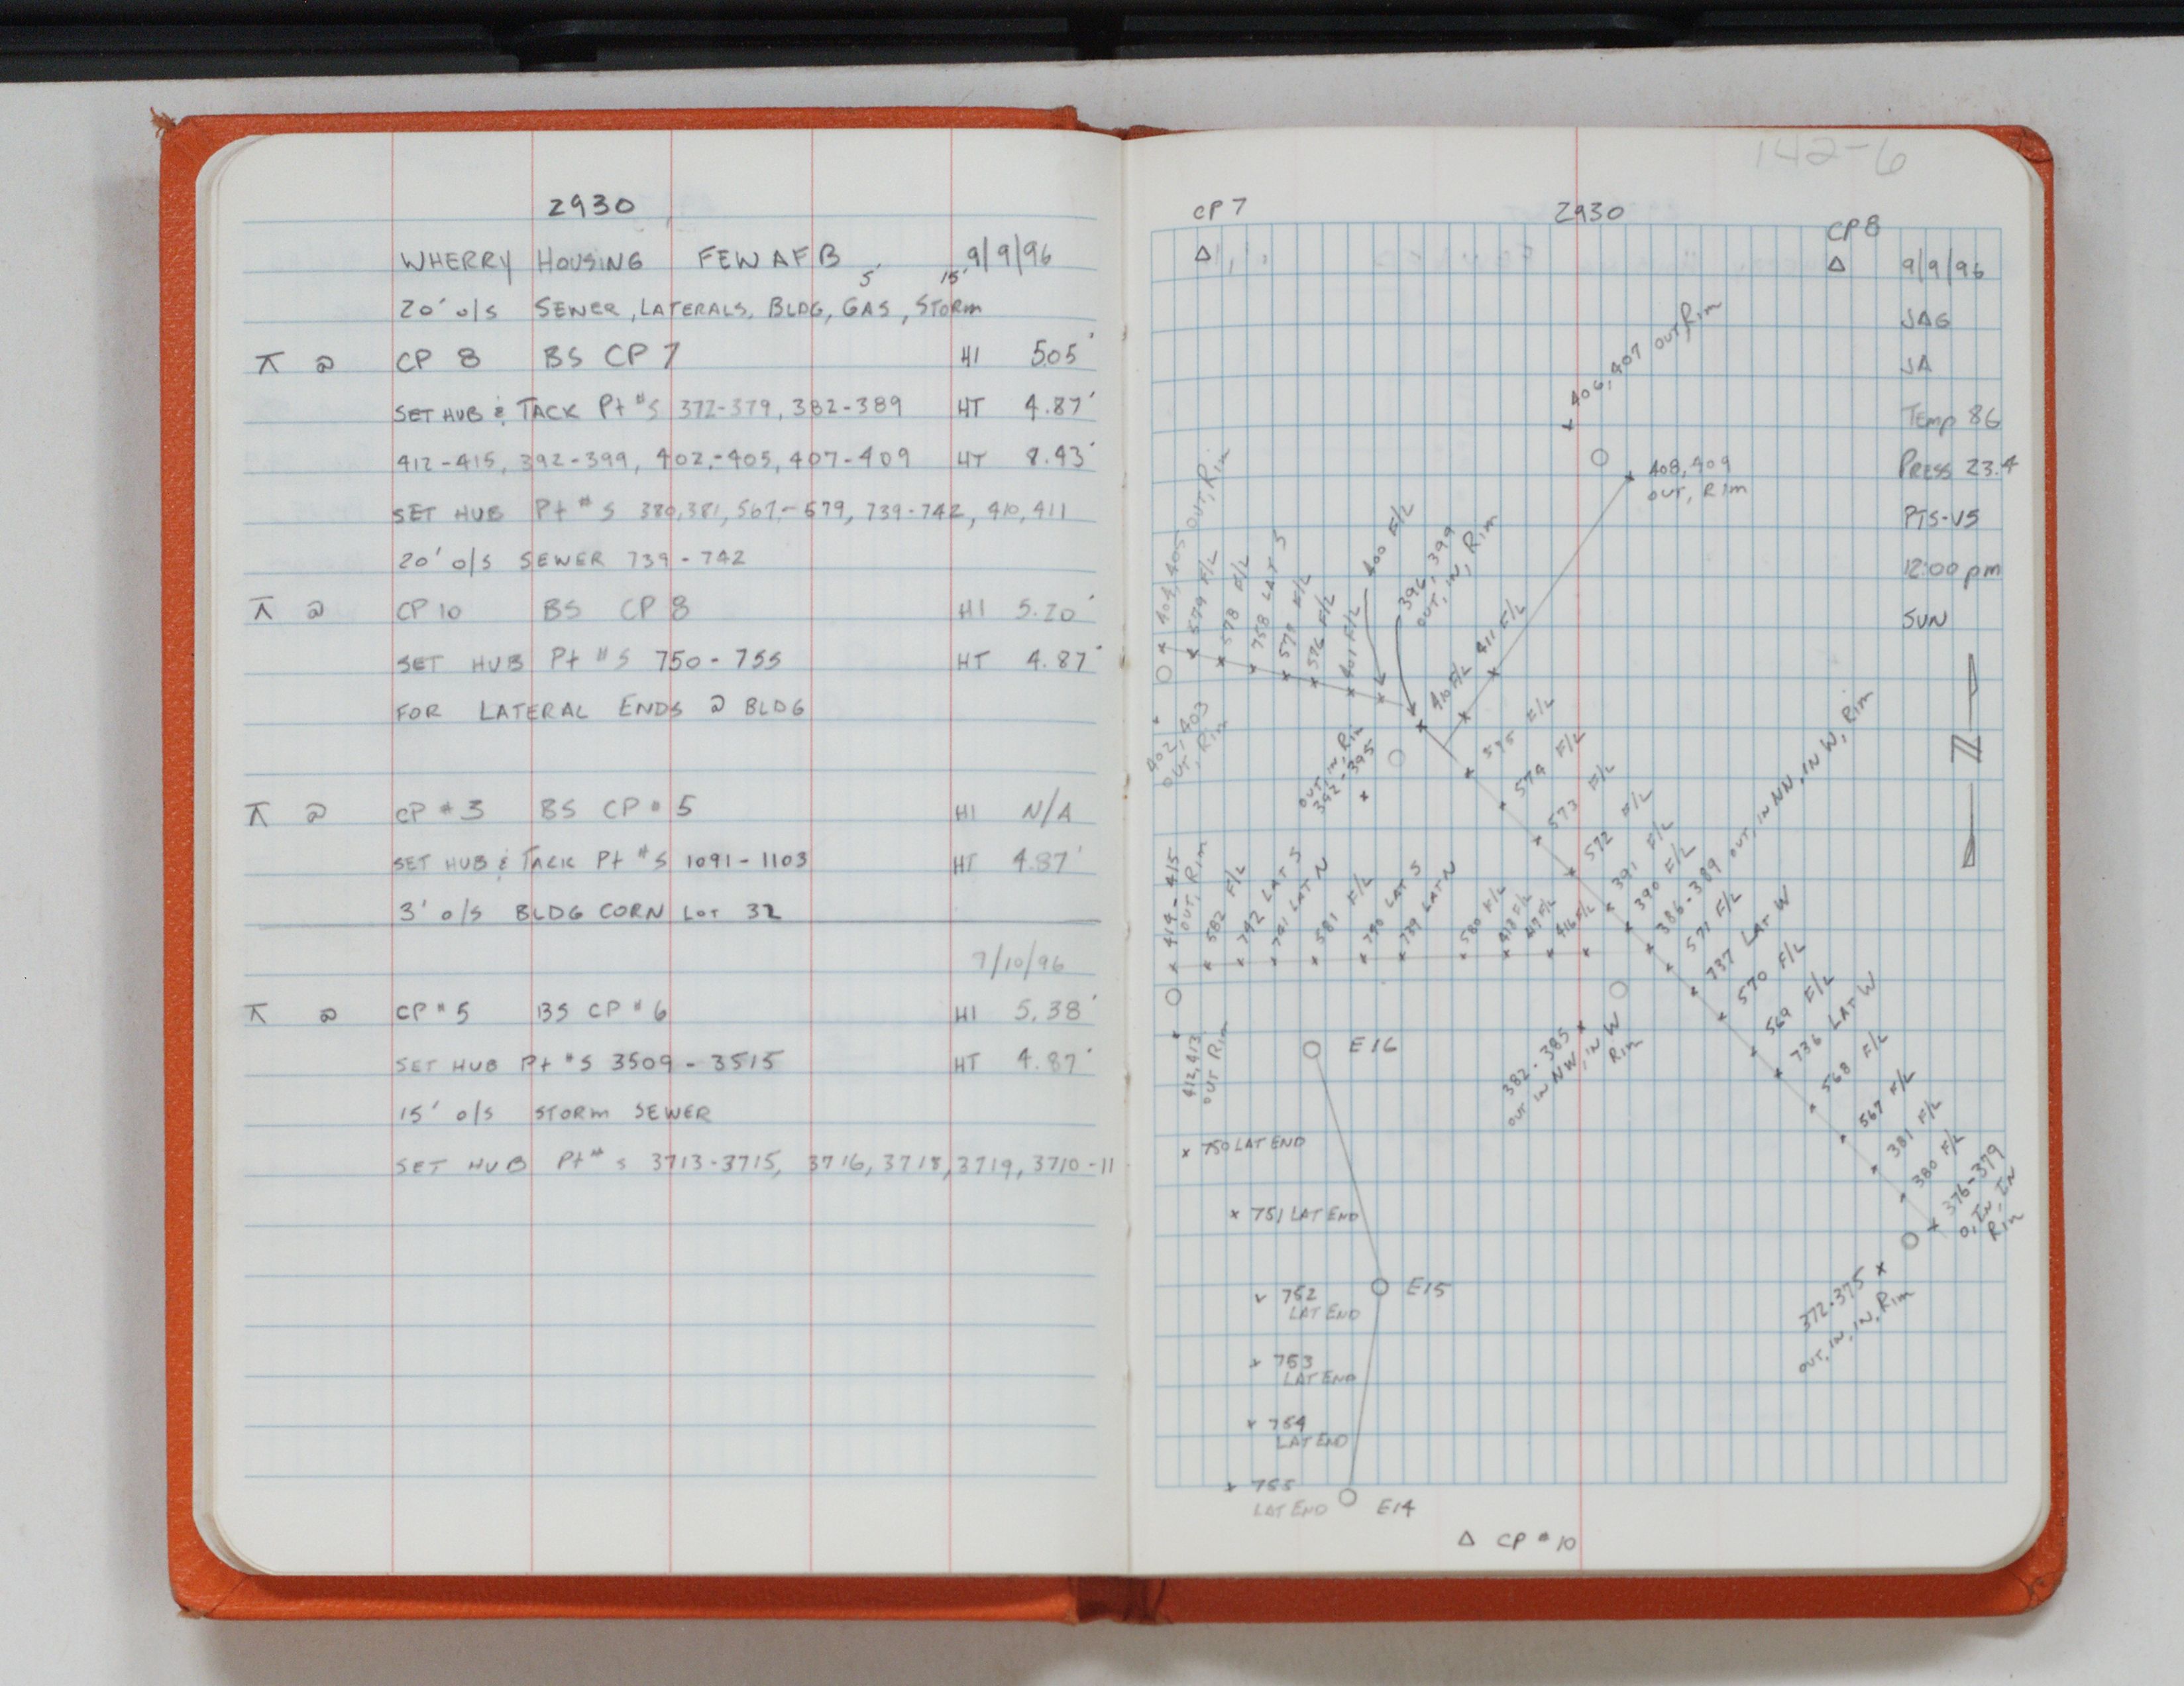 2930
WHERRY HOUSING FEWAFB 9/9/96
5' 15'
20' o/s SEWER, LATERALS, BLDG, GAS, STORM
⊼ @ CP 8 BS CP 7 HI 5.05'
SET HUB & TACK Pt #S 372-379, 382-389 HT 4.87'
412-415, 392-399, 402-405, 407-409 HT 8.43'
SET HUB Pt #S 380,381, 567-579, 739-742, 410, 411
20' o/s SEWER 739-742
⊼ @ CP 10 BS CP 8 HI 5.20'
SET HUB Pt #S 750-755 HT 4.87'
FOR LATERAL ENDS @ BLDG
⊼ @ CP #3 BS CP #5 HI N/A
SET HUB & TACK Pt #S 1091-1103 HT 4.87'
3' o/s BLDG CORN LOT 32
9/10/96
⊼ @ CP #5 BS CP #6 HI 5.38'
SET HUB Pt #S 3509-3515 HT 4.87'
15' o/s STORM SEWER
SET HUB Pt #s 3713-3715, 3716, 3718, 3719, 3710-11
142-6
CP 7 2930 CP 8
Δ Δ 9/9/96
JAG
JA
Temp 86
PRESS 23.4
PTS-V5
12:00 pm
SUN
N
406, 407 OUT, Rim
408, 409
OUT, Rim
404, 405 OUT, Rim
579 F/L
578 F/L
758 LAT S
577 F/L
576 F/L
401 F/L
400 F/L
396, 399
OUT, IN, Rim
410 F/L
411 F/L
402, 403
OUT, Rim
OUT, IN, Rim
392-395
575 F/L
574 F/L
573 F/L
572 F/L
391 F/L
390 F/L
386-389 OUT, IN NW, IN W, Rim
571 F/L
737 LAT W
570 F/L
569 F/L
736 LAT W
568 F/L
567 F/L
381 F/L
380 F/L
376-379
O, IN, IN
Rim
372-375
OUT, IN, IN, Rim
414-415
OUT, Rim
582 F/L
742 LAT S
741 LAT N
581 F/L
740 LAT S
739 LAT N
580 F/L
418 F/L
417 F/L
416 F/L
412, 413
OUT Rim
382-385
OUT IN NW, IN W
Rim
E16
750 LAT END
751 LAT END
E15
752
LAT END
753
LAT END
754
LAT END
755
LAT END
E14
Δ CP #10